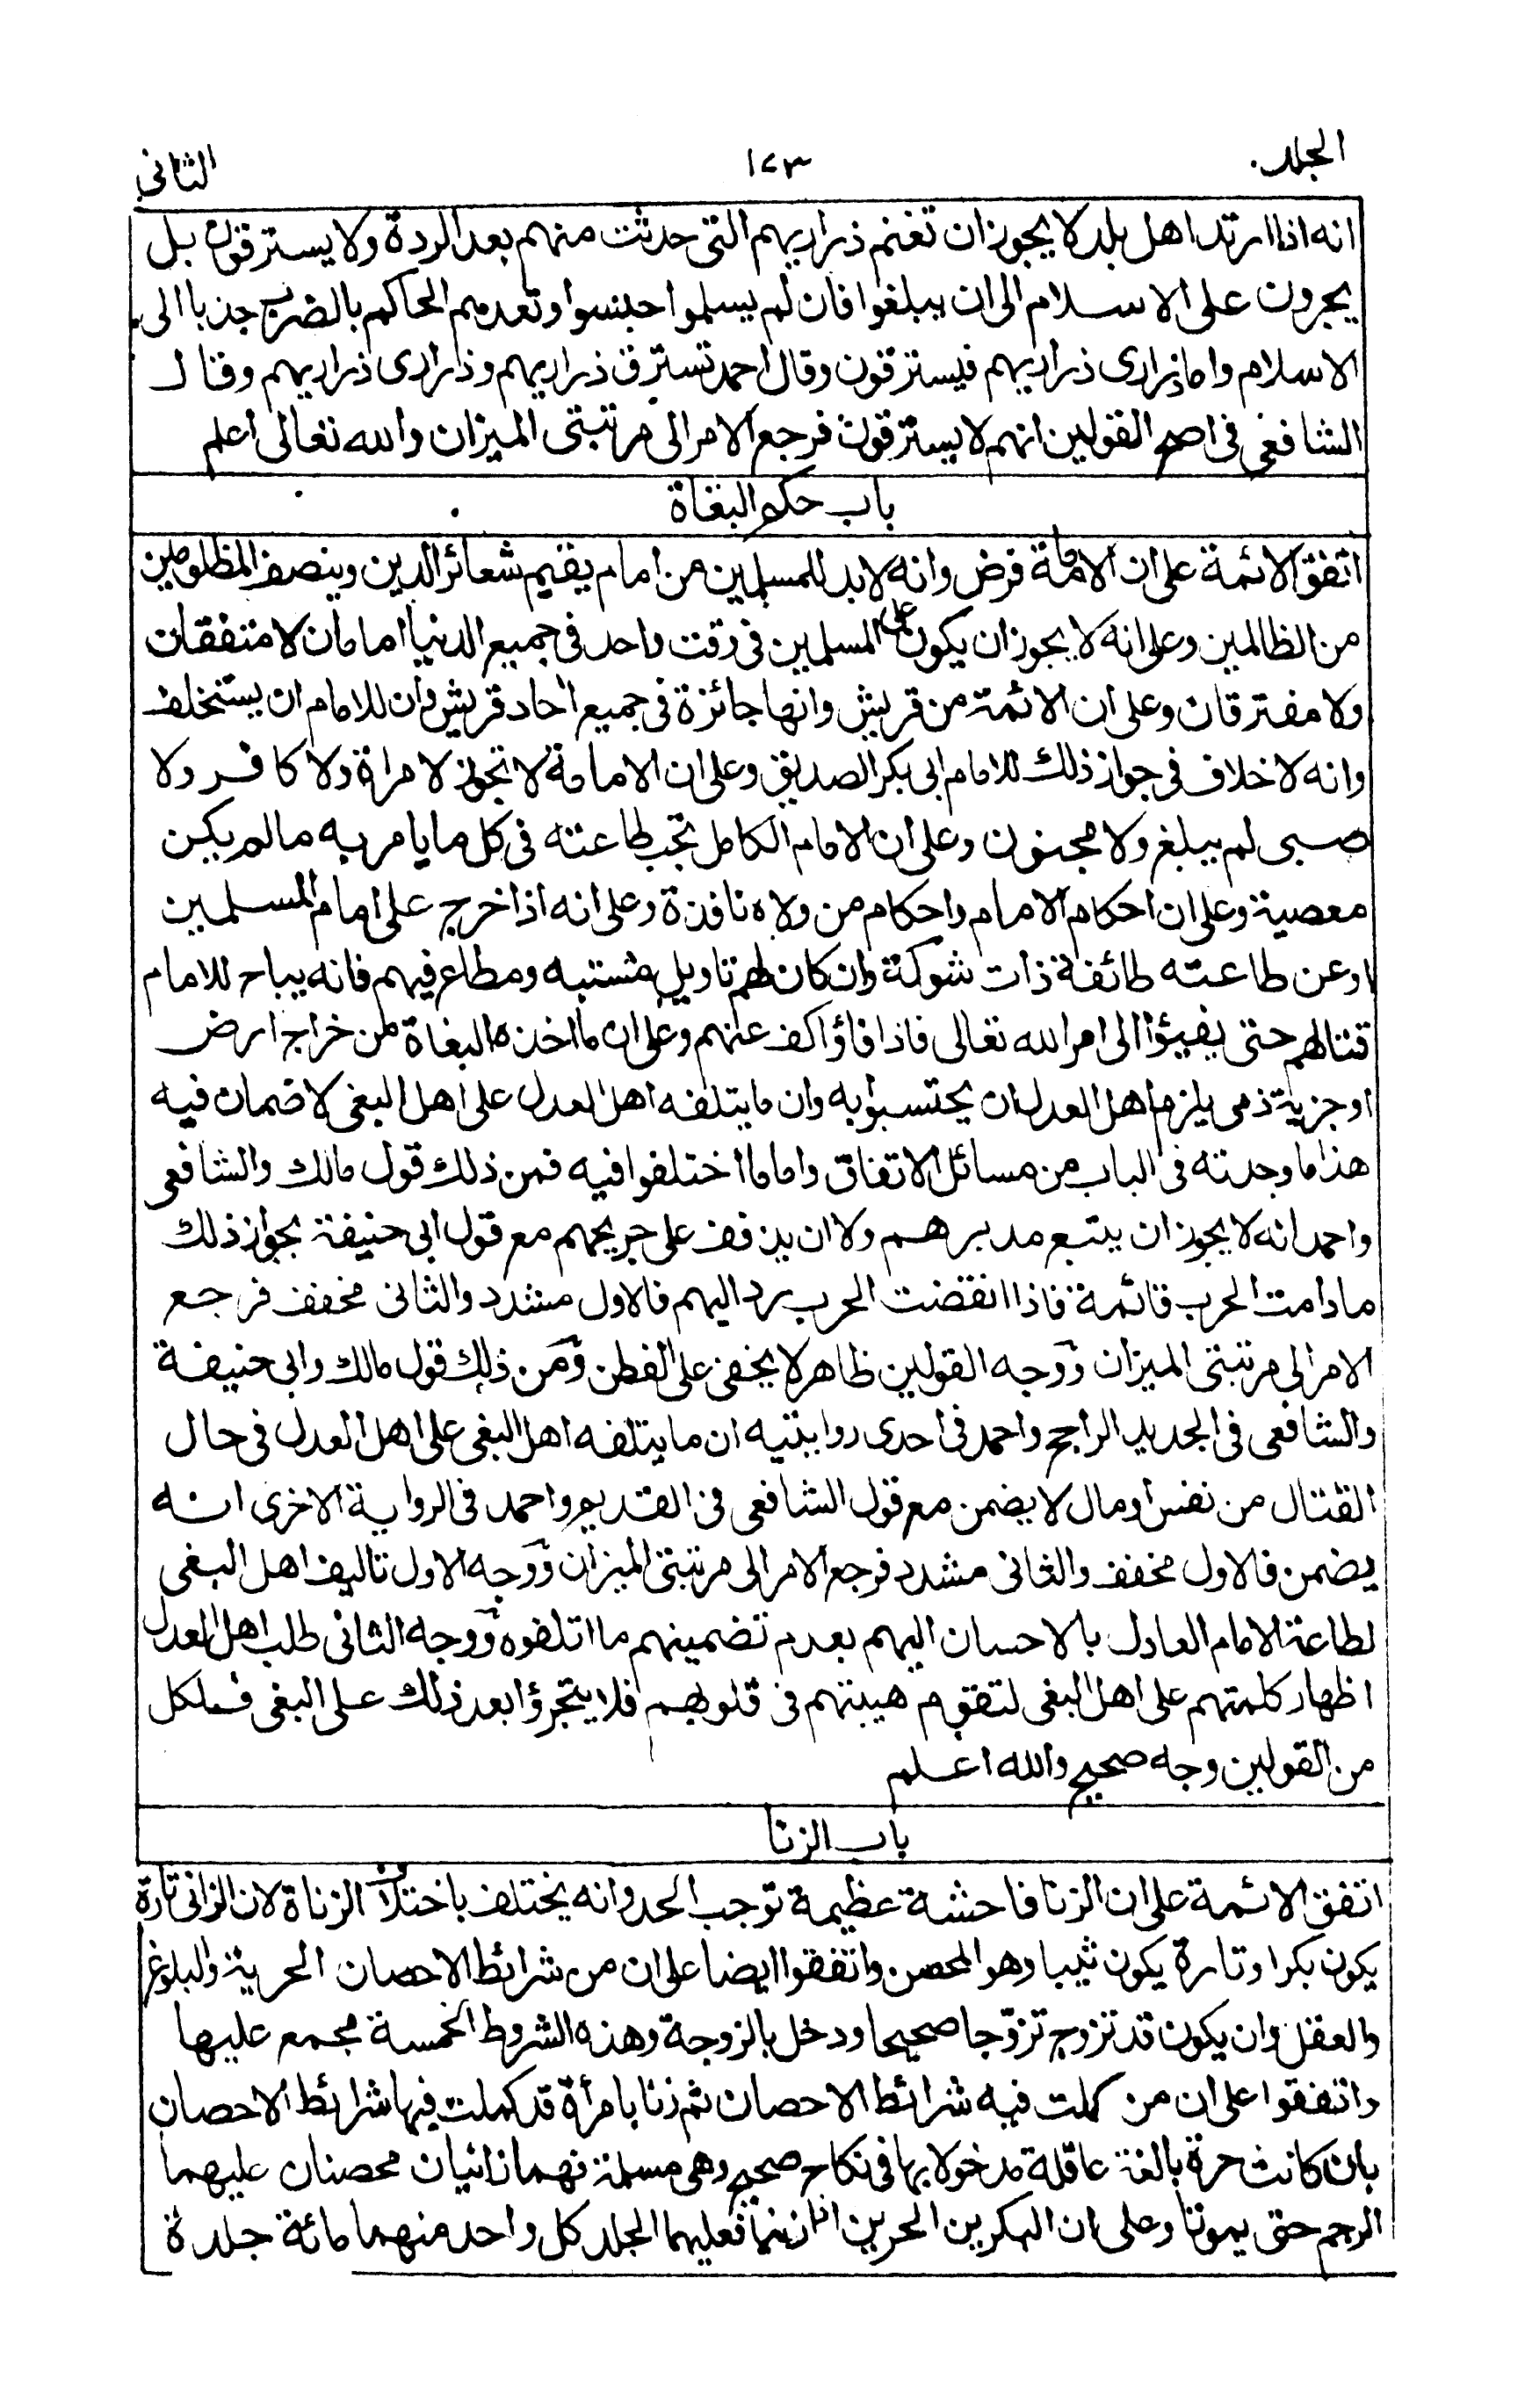 الجلد
١٧٣
الثانى
انه اذا ارتد اهل بلد لا يجوز ان تغنم ذراريهم التى حدثت منهم بعد الردة ولا يسترقون بل
يجبرون على الاسلام الى ان يبلغوا فان لم يسلموا حبسوا وتعدهم الحاكم بالضرب جذبا الى
الاسلام واما ذرارى ذراريهم فيسترقون وقال احمد تسترق ذراريهم وذرارى ذراريهم وقال
الشافعى فى اصح القولين انهم لا يسترقون فرجع الامر الى مرتبتى الميزان والله تعالى اعلم
باب حكم البغاة
اتفق الائمة على ان الامامة فرض وانه لا بد للمسلمين من امام يقيم شعائر الدين وينصف المظلومين
من الظالمين وعلى انه لا يجوز ان يكون على المسلمين فى وقت واحد فى جميع الدنيا امامان لا متفقان
ولا مفترقان وعلى ان الائمة من قريش وانها جائزة فى جميع احاد قريش وان للامام ان يستخلف
وانه لا خلاف فى جواز ذلك للامام ابى بكر الصديق وعلى ان الامامة لا تجوز لامراة ولا كافر ولا
صبى لم يبلغ ولا مجنون وعلى ان الامام الكامل تجب طاعته فى كل ما يامر به ما لم يكن
معصية وعلى ان احكام الامام واحكام من ولاه نافذة وعلى انه اذا خرج على امام المسلمين
او عن طاعته طائفة ذات شوكة وان كان لهم تاويل مشتبه ومطاع فيهم فانه يباح للامام
قتالهم حتى يفيئوا الى امر الله تعالى فاذا فاؤا كف عنهم وعلى ان ما اخذه البغاة من خراج ارض
او جزية ذمى يلزم اهل العدل ان يحتسبوا به وان ما يتلفه اهل العدل على اهل البغى لا ضمان فيه
هذا ما وجدته فى الباب من مسائل الاتفاق واما ما اختلفوا فيه فمن ذلك قول مالك والشافعى
واحمد انه لا يجوز ان يتبع مدبرهم ولا ان يذفف على جريحهم مع قول ابى حنيفة بجواز ذلك
ما دامت الحرب قائمة فاذا انقضت الحرب يرد اليهم فالاول مشدد والثانى مخفف فرجع
الامر الى مرتبتى الميزان ووجه القولين ظاهر لا يخفى على الفطن ومن ذلك قول مالك وابى حنيفة
والشافعى فى الجديد الراجح واحمد فى احدى روايتيه ان ما يتلفه اهل البغى على اهل العدل فى حال
القتال من نفس او مال لا يضمن مع قول الشافعى فى القديم واحمد فى الرواية الاخرى انه
يضمن فالاول مخفف والثانى مشدد فرجع الامر الى مرتبتى الميزان ووجه الاول تاليف اهل البغى
لطاعة الامام العادل بالاحسان اليهم بعدم تضمينهم ما اتلفوه ووجه الثانى طلب اهل العدل
اظهار كلمتهم على اهل البغى لتقوم هيبتهم فى قلوبهم فلا يتجرؤا بعد ذلك على البغى فلكل
من القولين وجه صحيح والله اعلم
باب الزنا
اتفق الائمة على ان الزنا فاحشة عظيمة توجب الحد وانه يختلف باختلاف الزناة لان الزانى تارة
يكون بكرا وتارة يكون ثيبا وهو المحصن واتفقوا ايضا على ان من شرائط الاحصان الحرية والبلوغ
والعقل وان يكون قد تزوج تزوّجا صحيحا ودخل بالزوجة وهذه الشروط الخمسة مجمع عليها
واتفقوا على ان من كملت فيه شرائط الاحصان ثم زنا بامرأة قد كملت فيها شرائط الاحصان
بان كانت حرة بالغة عاقلة مدخولا بها فى نكاح صحيح وهى مسلمة فهما زانيان محصنان عليهما
الرجم حتى يموتا وعلى ان البكرين الحرين اذا زنيا فعليهما الجلد كل واحد منهما مائة جلدة